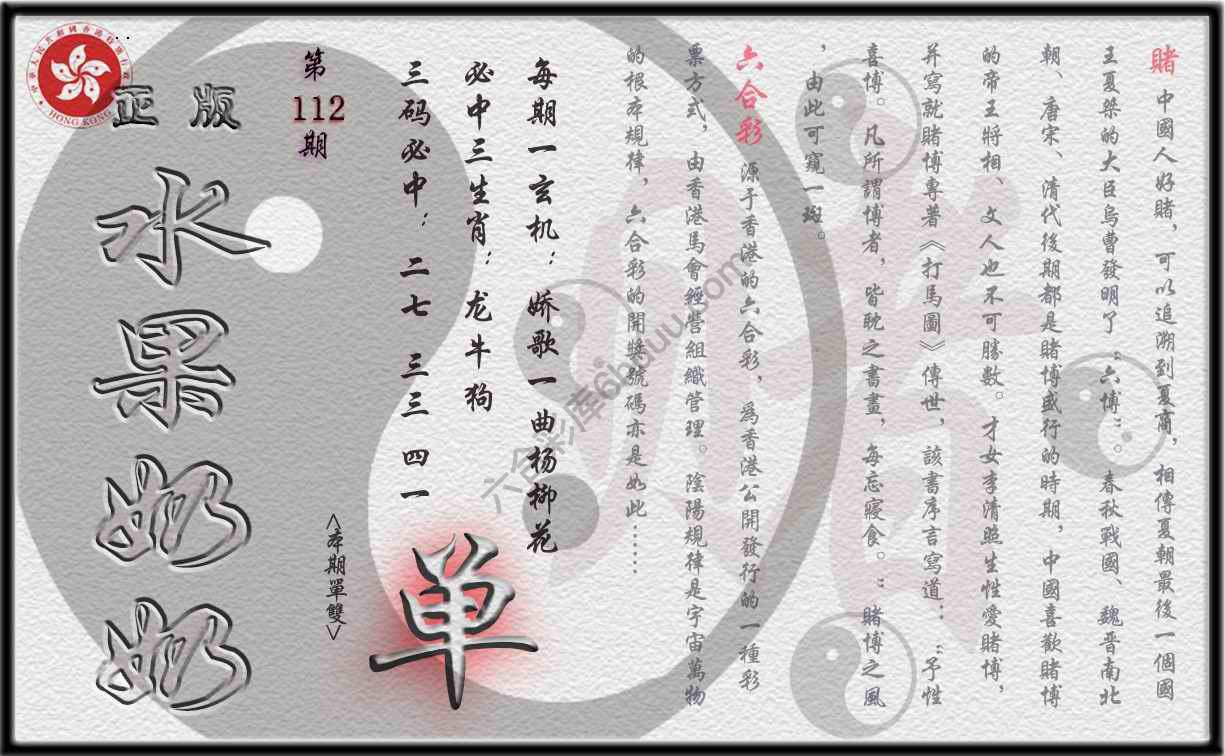 賭 中國人好賭，可以追溯到夏商，相傳夏朝最後一個國
王夏桀的大臣烏曹發明了“六博”。春秋戰國、魏晋南北
朝、唐宋、清代後期都是賭博盛行的時期，中國喜歡賭博
的帝王將相、文人也不可勝數。才女李清照生性愛賭博，
并寫就賭博專著《打馬圖》傳世，該書序言寫道：“予性
喜博。凡所謂博者，皆耽之書畫，每忘寢食。”賭博之風
，由此可窺一斑。
六合彩 源于香港的六合彩，爲香港公開發行的一種彩
票方式，由香港馬會經營組織管理。陰陽規律是宇宙萬物
的根本規律，六合彩的開獎號碼亦是如此……
每期一玄机：娇歌一曲杨柳花
必中三生肖：龙牛狗
三码必中：二七 三三 四一
单
<本期單雙>
第
112
期
正版
水果奶奶
中華人民共和國香港特別行政區
HONG KONG
六合彩库6hduu.com